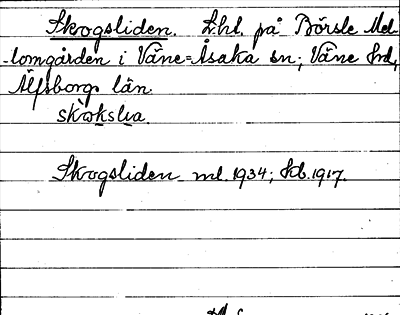 Skogsliden. L.hl. på Börsle Mel-
lomgården i Väne-Åsaka sn; Väne hd,
Älfsborgs län.
Skogsliden ml. 1934; kb. 1917.